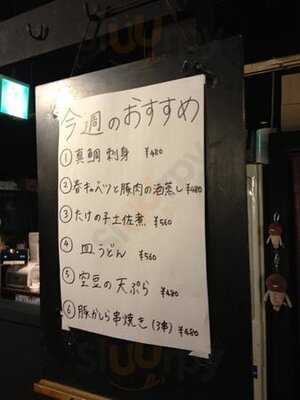 今週のおすすめ
① 真鯛 刺身 ¥480
② 春キャベツと豚肉の酒蒸し ¥480
③ たけの子土佐煮 ¥560
④ 皿うどん ¥560
⑤ 空豆の天ぷら ¥480
⑥ 豚かしら串焼き (3串) ¥480